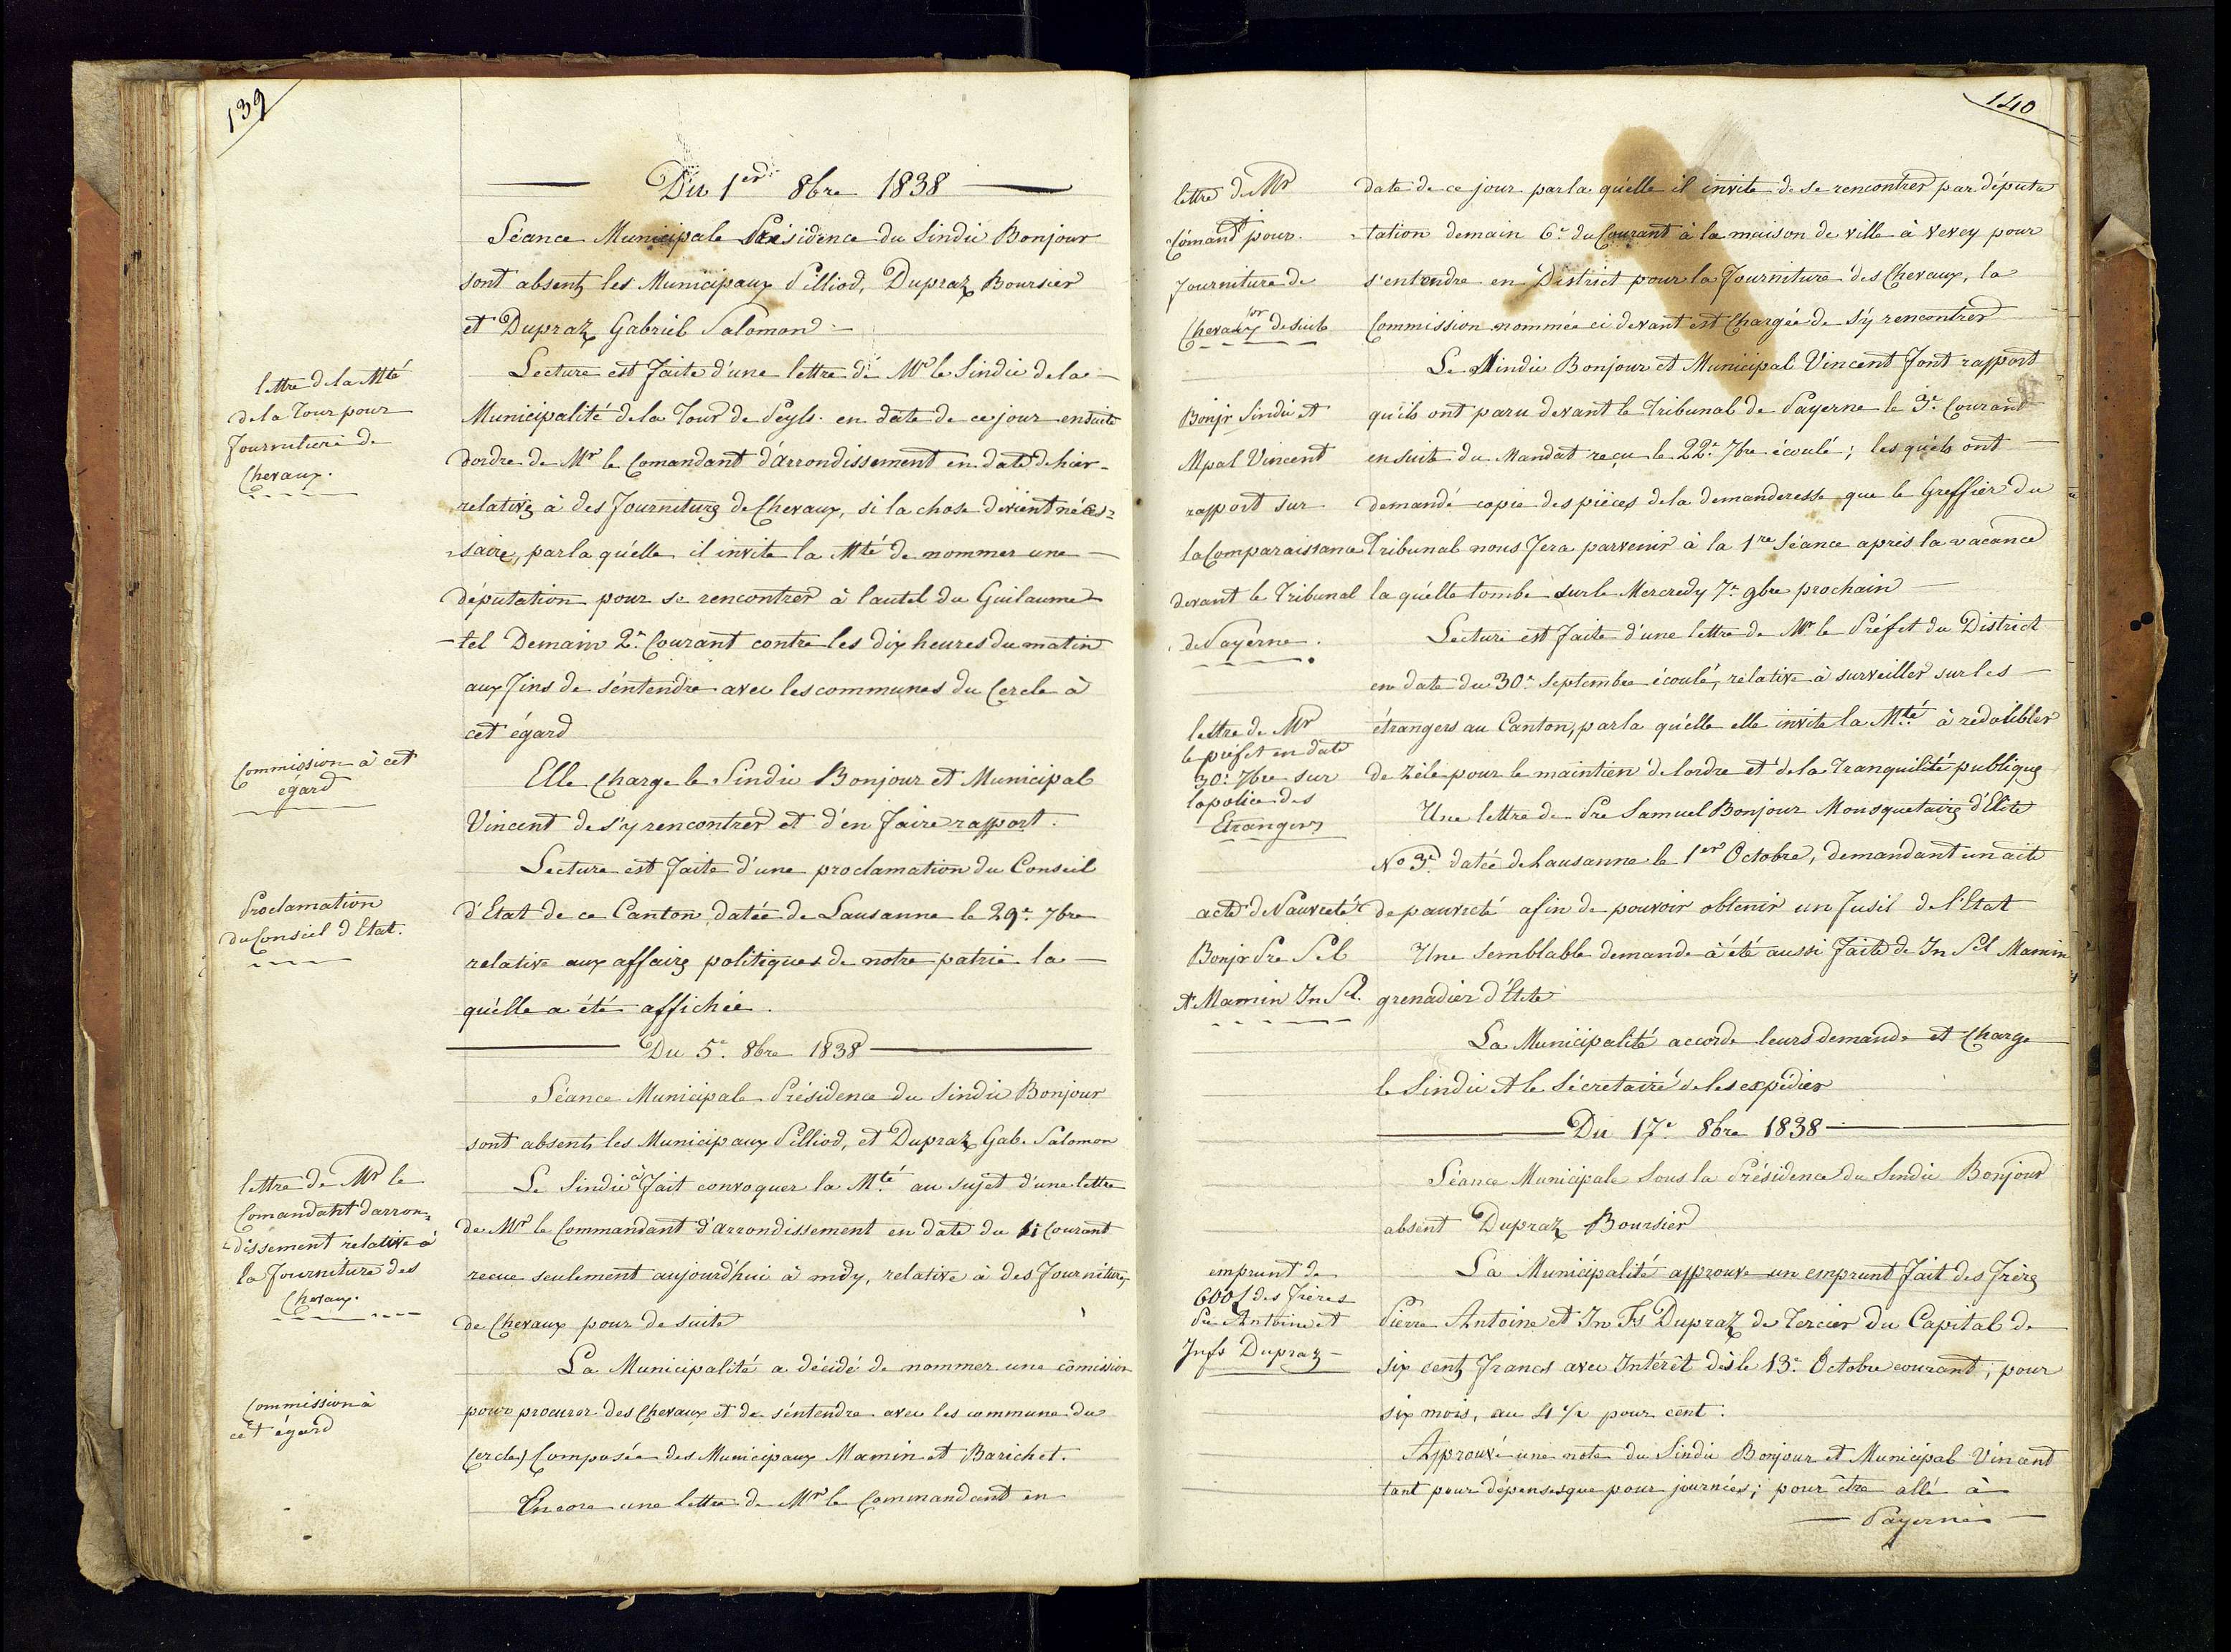 139
Du 1er 8bre 1838
Séance Municipale Présidence du Sindic Bonjour
sont absents les Municipaux Pilliod, Dupraz Boursier
et Dupraz Gabriel Salomon
lettre de la Mté
de la Tour pour
fourniture de
Chevaux.
Lecture est faite d'une lettre de Mr le Sindic de la
Municipalité de la Tour de Peylz en date de ce jour ensuite
dordre de Mr le Comandant d'Arrondissement en date d'hier
relatives à des fournitures de Chevaux, si la chose devient néces=
=saire, par la qu'elle il invite la Mté de nommer une
députation pour se rencontrer à l'autel du Guilaume
-tel Demain 2e Courant contre les dix heures du matin
aux fins de s'entendre avec les communes du Cercle à
cet égard
Commission à cet
égard
Elle charge le Sindic Bonjour et Municipal
Vincent de s'y rencontrer et d'en faire rapport.
Proclamation
du Conseil d'Etat.
Lecture est faite d'une proclamation du Conseil
d'Etat de ce Canton datée de Lausanne le 29e 7bre
relative aux affaires politiques de notre patrie la
qu'elle a été affichée.
Du 5e 8bre 1838
Séance Municipale Présidence du Sindic Bonjour
sont absents les Municipaux Pilliod, et Dupraz Gab. Salomon
lettre de Mr le
Comandant darron=
=dissement relative à
la fourniture des
Chevaux.
Le Sindic à fait convoquer la Mté au sujet d'une lettre
de Mr le Commandant d'arrondissement en date du Courant
recue seulement aujourd'hui à midy, relative à des fournitures
de Chevaux pour de suite
Commission à
cet égard
La Municipalité a décidé de nommer une comission
pour procurer des Chevaux et de s'entendre avec les commune du
Cercle) Composée des Municipaux Mamin et Barichet.
Encore une lettre de Mr le Commandant en
140
lettre de Mr
Comand pour
fourniture de
Chevaux de suite
date de ce jour par la qu'elle il invite de se rencontrer par députa
-tation demain 6e du Courant à la maison de ville à Vevey pour
s'entendre en District pour la Fourniture des Chevaux, la
Commission nommée ci devant est Chargée de s'y rencontrer
Bonjr Sindic et
Mpal Vincent
rapport sur
la Comparaissance
devant le Tribunal
de Payerne.
Le Sindic Bonjour et Municipal Vincent font rapport
qu'ils ont paru devant le Tribunal de Payerne le 3e Courant
ensuite du Mandat reçu le 22e 7bre écoulé; les quels ont
demandé copie des pièces de la demanderesse que le Greffier du
Tribunal nous fera parvenir à la 1re Séance après la vacance
la qu'elle tombe sur le Mercredy 7e 9bre prochain
lettre de Mr
le préfet en date
30e 7bre sur
la police des
Etrangers
Lecture est faite d'une lettre de Mr le Préfet du District
en date du 30e Septembre écoulé, relative à surveiller sur les
étrangers au Canton, par la qu'elle elle invite la Mté à redoubler
de zèle pour le maintien de lordre et de la Tranquilité publique
acte de Pauvreté
Bonjr Pre Sel
et Mamin Jn Sl.
Une lettre de Pre Samuel Bonjour Mousquetaire d'Elite
No 3e datée de Lausanne le 1er Octobre, demandant un acte
de pauvreté afin de pouvoir obtenir un fusil de l'Etat
Une semblable demande à été aussi faite de Jn Sel Mamin
grenadier d'Elite
La Municipalité accorde leurs demande et Charge
le Sindic et le Sécretaire de les expédier
Du 17e 8bre 1838
Séance Municipale Sous la Présidence du Sindic Bonjour
absent Dupraz Boursier
emprunt de
600f des frères
Pre Antoine et
Jn fs Dupraz
La Municipalité approuve un emprunt fait des frères
Pierre Antoine et Jn Fs Dupraz de Tercier du Capital de
six cents francs avec Intérêt dès le 13e Octobre courant, pour
six mois, au 4 ½ pour cent.
Approuvé une note du Sindic Bonjour et Municipal Vincent
tant pour dépenses que pour journées; pour être allé à
Payerne